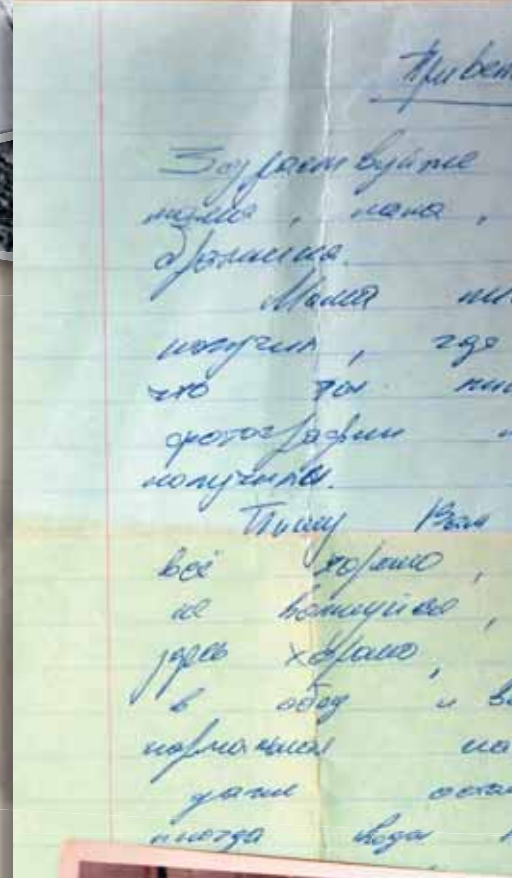 Привет
Здравствуйте
мама, папа,
братишка.
Мама
получил, где
что ты
фотографии
получили.
Пишу Вам
всё хорошо,
не волнуйся,
здесь хорошо,
в обед и
нормальная на
даже
иногда когда